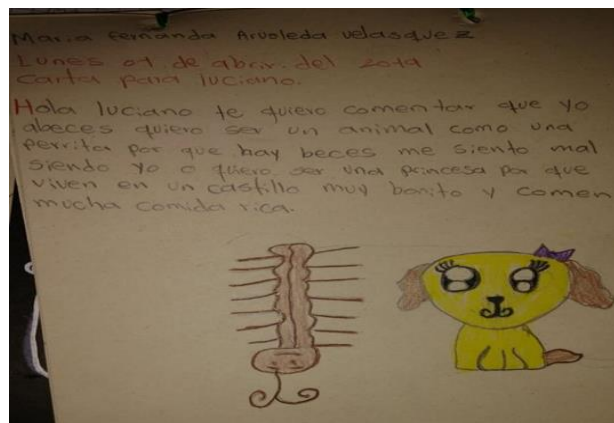 Maria fernanda Arvoleda velasquez
Lunes 01 de abrir del 2019
Carta para luciano.
Hola luciano te quiero comentar que yo
abeces quiero ser un animal como una
perrita por que hay beces me siento mal
siendo yo o quiero ser una princesa por que
viven en un castillo muy bonito y comen
mucha comida rica.